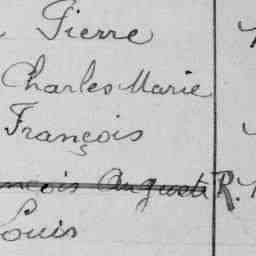 Pierre
Charles Marie
François
ncois Auguste R.
Louis